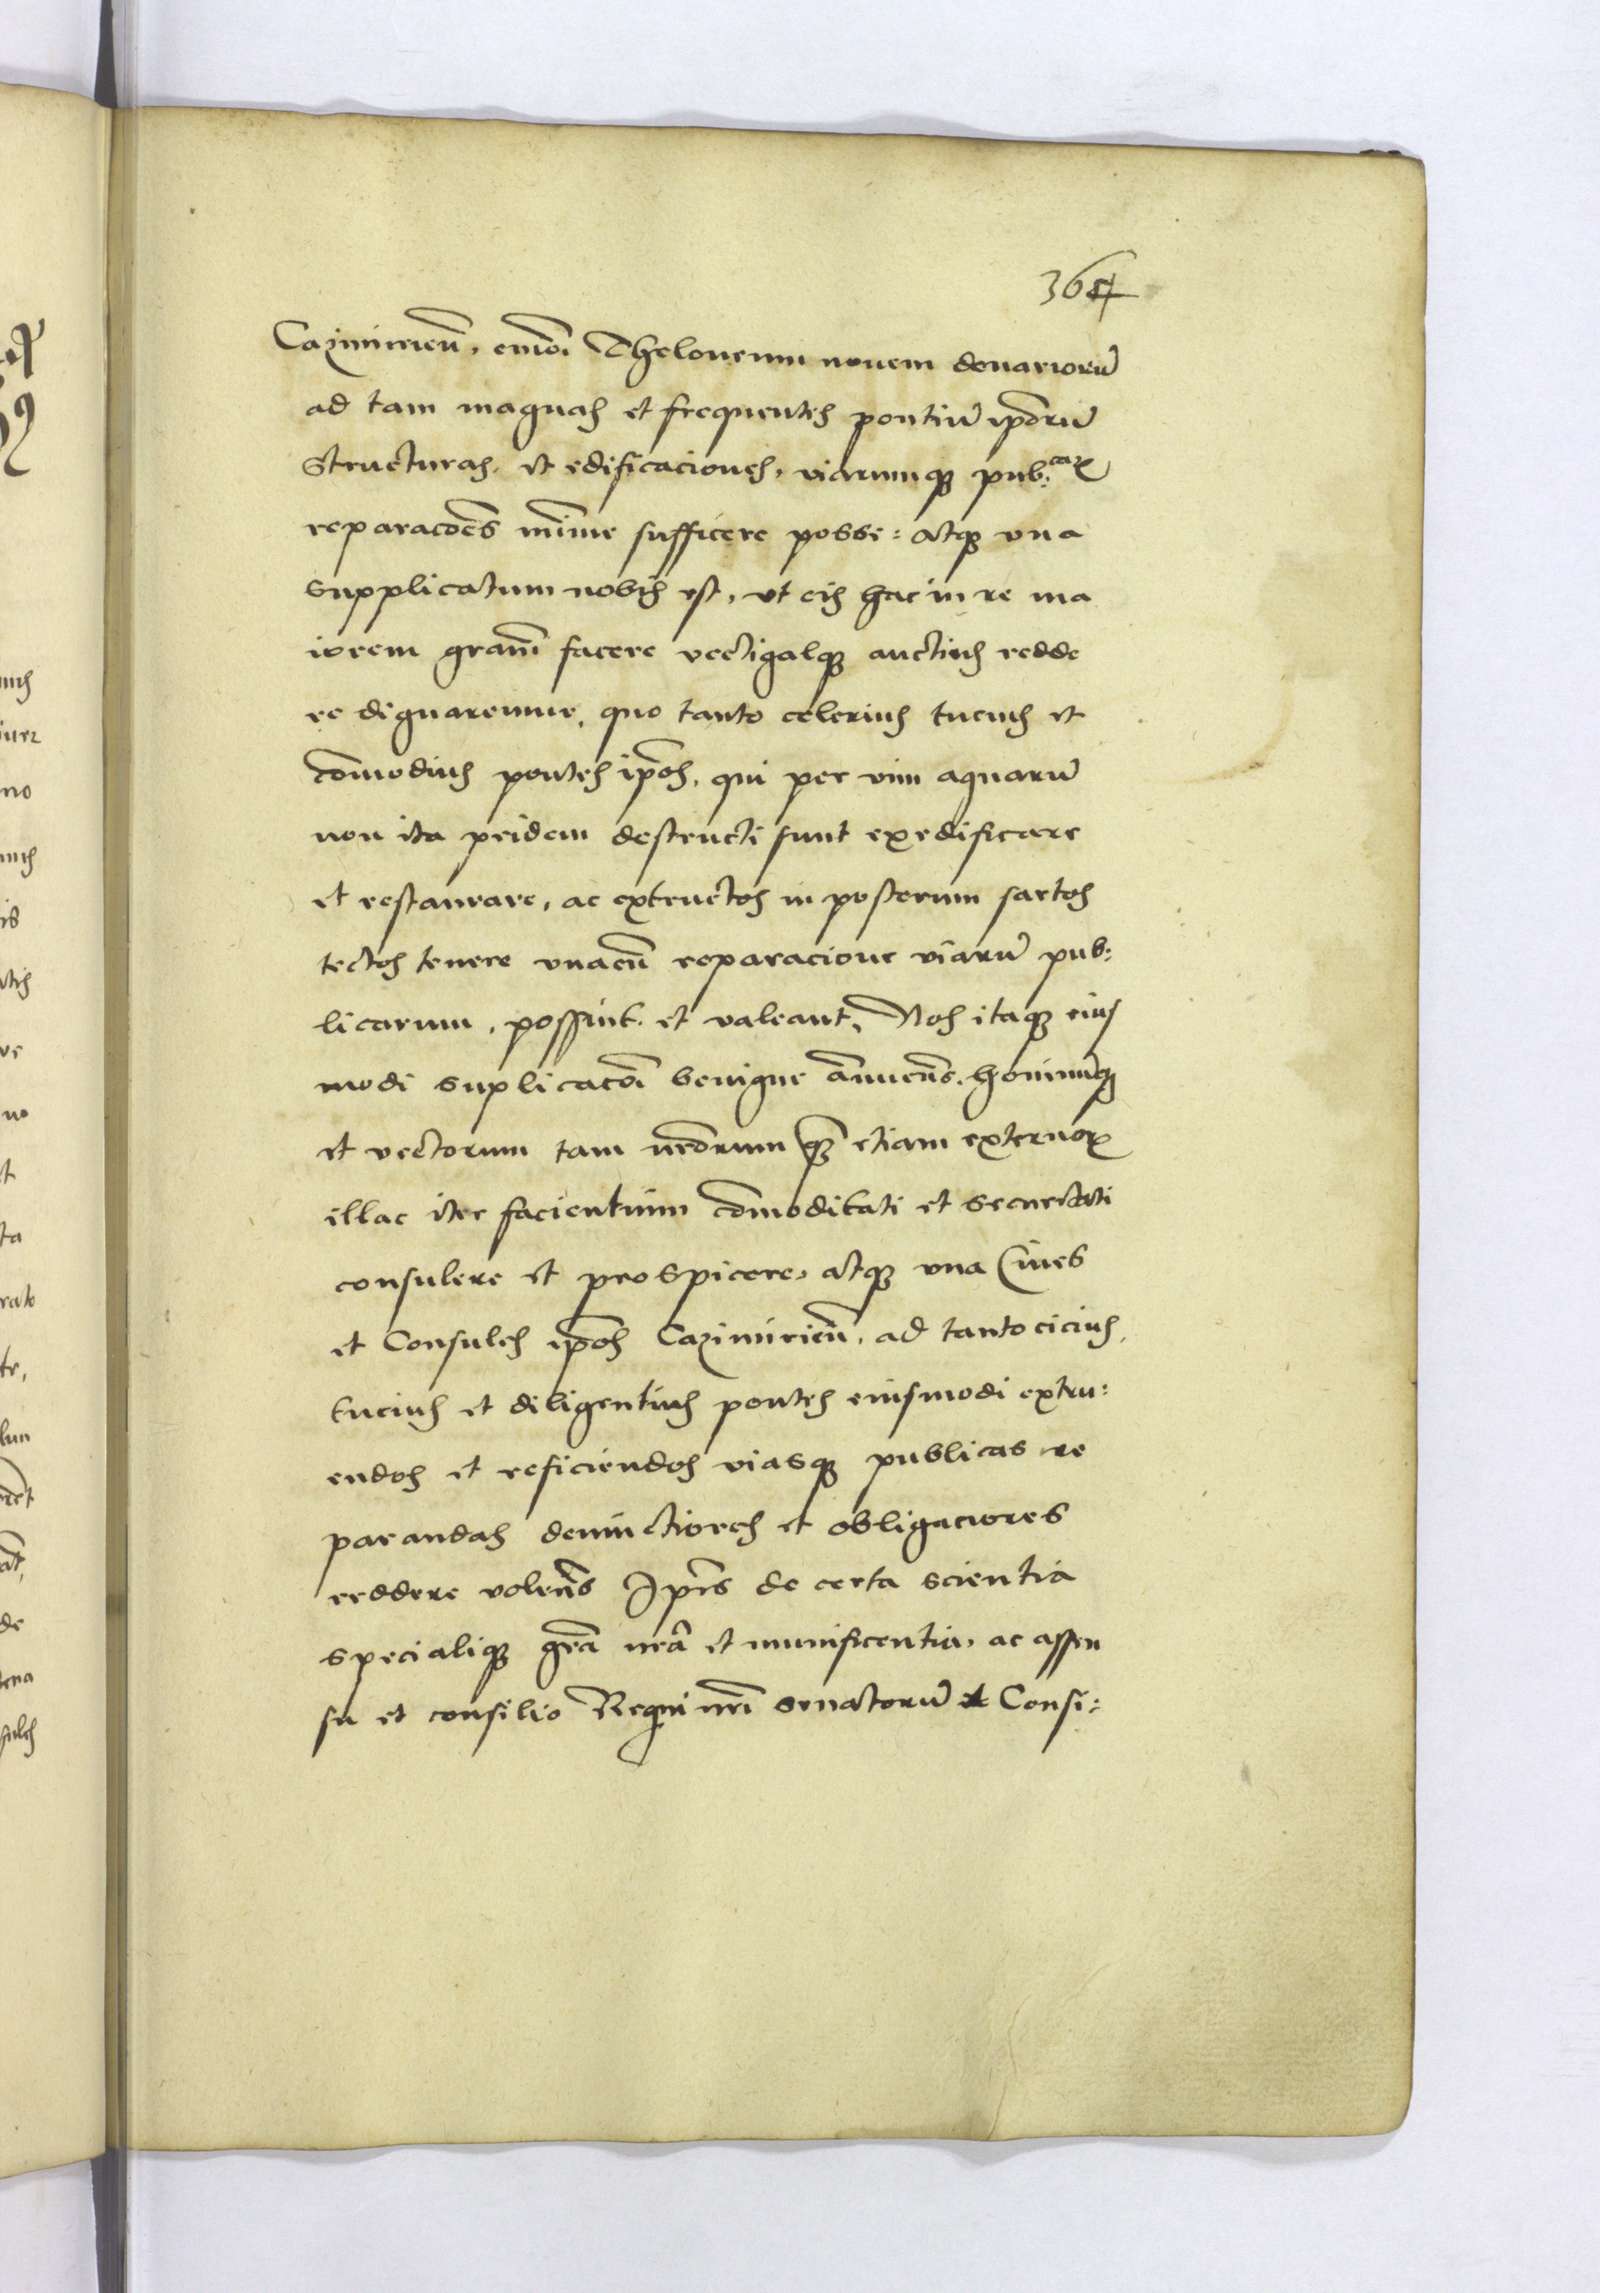 364
Cazimirien̄, eiusmōi Theloneum nouem denariorū
ad tam magnas et frequentes pontiū ip̄orū
Structuras, et edificaciones, viarumq₃ pub:caꝝ
reparacōēs mīime sufficere posse: atq₃ vna
supplicatum nobis est, vt eis hac in re ma
iorem gra͠m facere vectigalq₃ auctius redde
re dignaremur, quo tanto celerius tucius et
cōmodius pontes ip̄os, qui per vim aquarū
non ita pridem destructi sunt exedificare
et restaurare, ac extructos in posterum sartos
tectos tenere vnacū reparacione viarū pub:
licarum, possint et valeant, Nos itaq₃ eius
modi suplicacōi benigne ānuen̄s, hominūq₃
et vectorum tam nr̄orum q₃ etiam externoꝝ
illac iter facientium cōmoditati et securitati
consulere et prospicere, atq₃ vna Ciues
et Consules ip̄os Cazimirien̄, ad tanto cicius,
tucius et diligentius pontes eiusmodi extru:
endos et reficiendos viasq₃ publicas re
parandas deuinctiores et obligaciores
reddere volen̄s Ip̄is de certa scientia
speciali q₃ gr̄a nr̄a et munificentia, ac assen
su et consilio Regni nr̄i senatorū et Consi: